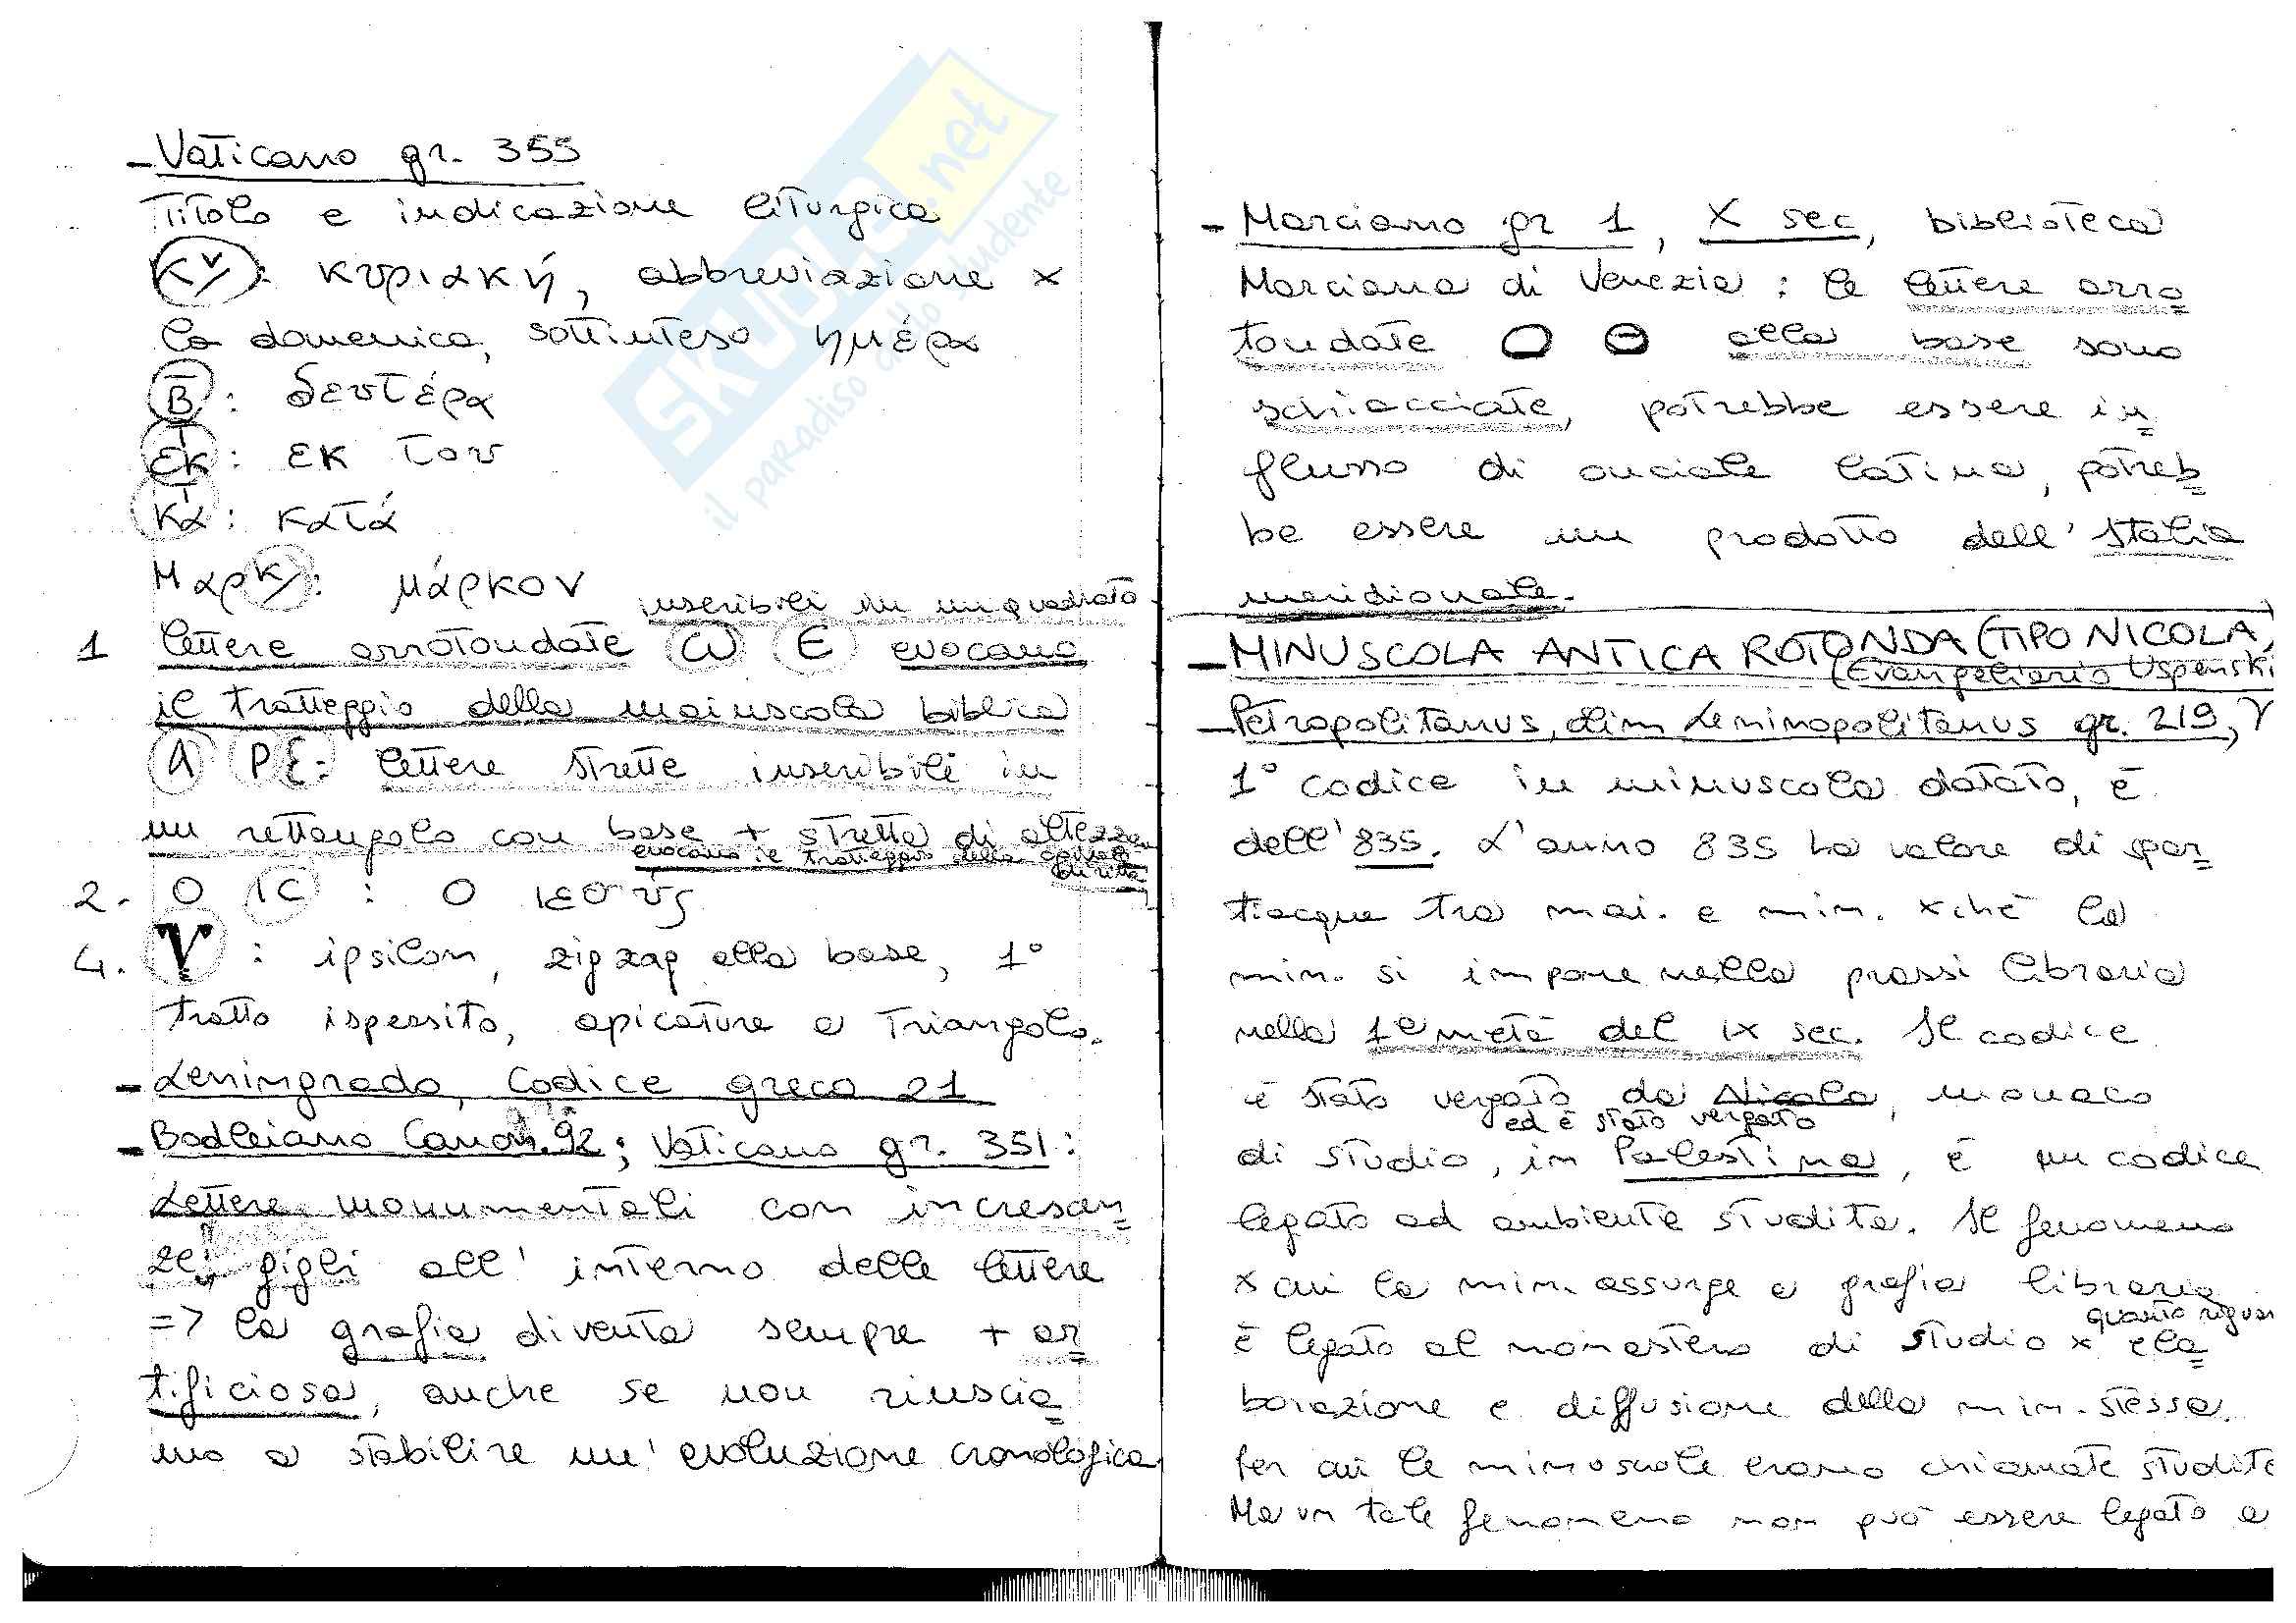 - Vaticano gr. 355
Titolo e indicazione liturgica
Κυ: κυριακή, abbreviazione x
la domenica, sottinteso ημέρα
Β̅: δευτέρα
εκ: εκ του
κα: κατά
Μαρκ/: μάρκον inscribili in un quadrato
1 lettere arrotondate ω Ε evocano
il tratteggio della maiuscola biblica
A P E: lettere strette inscribili in
un rettangolo con base + stretta di altezza
evocano il tratteggio della
diritta
2. Ο ΙC : Ο ιεσούς
4. Υ : ipsilon, zig zag alla base, 1°
tratto ispessito, apicature a triangolo.
- Leningrado, Codice greco 21
- Bodleiano Canon. 92; Vaticano gr. 351:
Lettere monumentali con incresan=
ze, gigli all'interno delle lettere
=> la grafia diventa sempre + ar=
tificiosa, anche se non riuscia=
mo a stabilire un'evoluzione cronologica
- Marciano gr 1, X sec, biblioteca
Marciana di Venezia: le lettere arro
tondate Ο Θ alla base sono
schiacciate, potrebbe essere in=
flusso di onciale latina, potreb=
be essere un prodotto dell'Italia
meridionale.
- MINUSCOLA ANTICA ROTONDA (TIPO NICOLA)
(Evangeliario Uspenski
- Petropolitanus, olim Leninopolitanus gr. 219,
1° codice in minuscola datato, è
dell'835. L'anno 835 ha valore di spar=
tiacque tra mai. e min. xchè la
min. si impone nella prassi libraria
nella 1ª metà del IX sec. Il codice
è stato vergato da Nicola, monaco
ed è stato vergato
di studio, in Palestina, è un codice
legato ad ambiente studita. Il fenomeno
x cui la min. assurge a grafia libraria
quanto riguar
è legato al monastero di studio x ela=
borazione e diffusione della min. stessa.
Per cui le minuscole erano chiamate studite
Ma un tale fenomeno non può essere legato a
SKUOLA.net
il paradiso dello studente